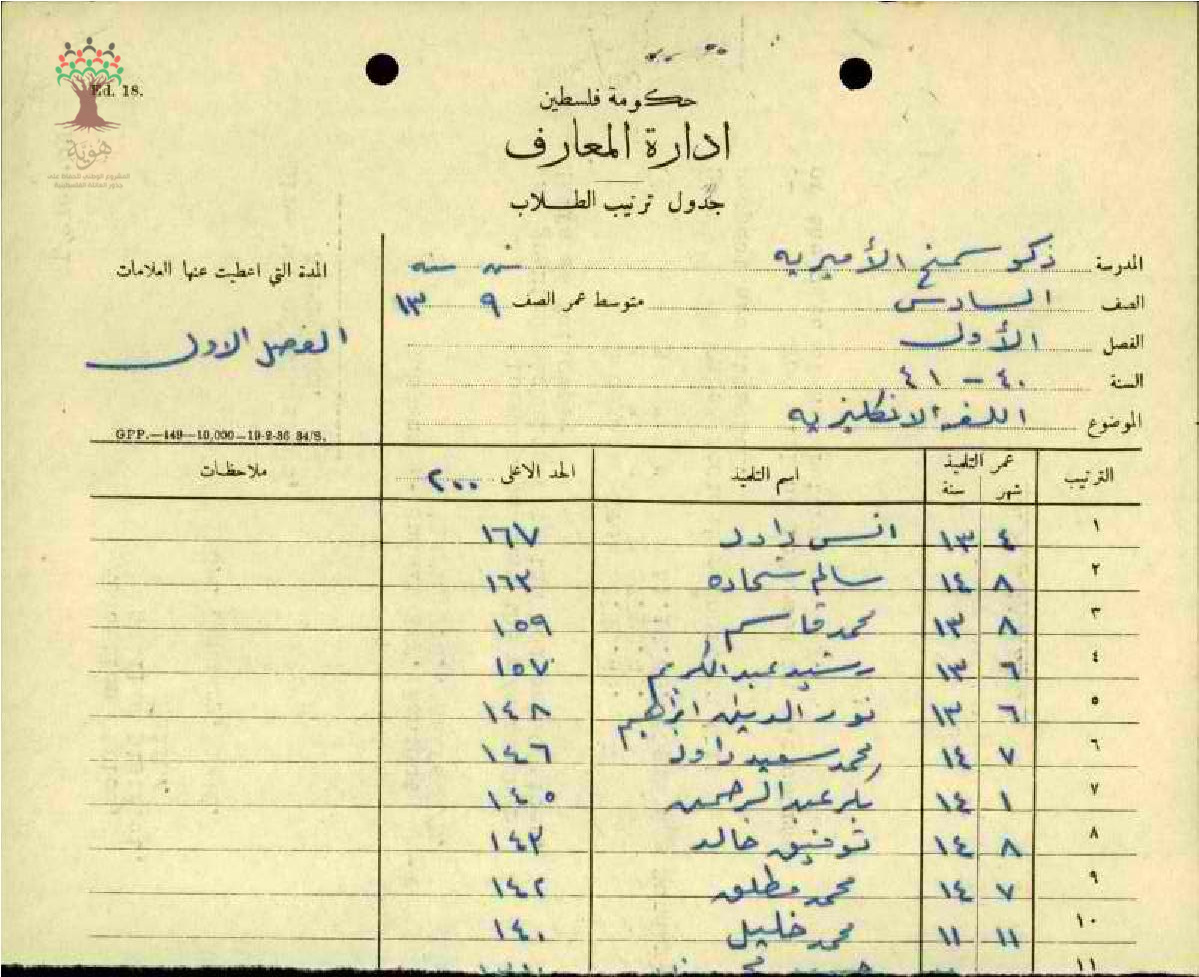 Ed. 18.
هوية
المشروع الوطني للحفاظ على
جذور العائلة الفلسطينية
حكومة فلسطين
ادارة المعارف
جدول ترتيب الطلاب
المدرسة ذكور سمخ الأميرية
الصف السادس متوسط عمر الصف ٩ ش ١٣ سنه
الفصل الأول
السنة ٤٠ – ٤١
الموضوع اللغة الانكليزيه
المدة التي اعطيت عنها العلامات
الفصل الاول
G.P.P.—149—10,000—19-2-36 34/S.
الترتيب عمر التلميذ شهر سنة اسم التلميذ الحد الاعلى ٢٠٠ ملاحظات
١ ٤ ١٣ انس داود ١٦٧
٢ ٨ ١٤ سالم شحاده ١٦٣
٣ ٨ ١٣ محمد قاسم ١٥٩
٤ ٦ ١٣ رشيد عبد الكريم ١٥٧
٥ ٦ ١٣ نور الدين ابراهيم ١٤٨
٦ ٧ ١٤ محمد سعيد داود ١٤٦
٧ ١ ١٤ بكر عبد الرحمن ١٤٥
٨ ٨ ١٤ توفيق خالد ١٤٣
٩ ٧ ١٤ محمد مطلق ١٤٢
١٠ ١١ ١١ محمد خليل ١٤٠
١١